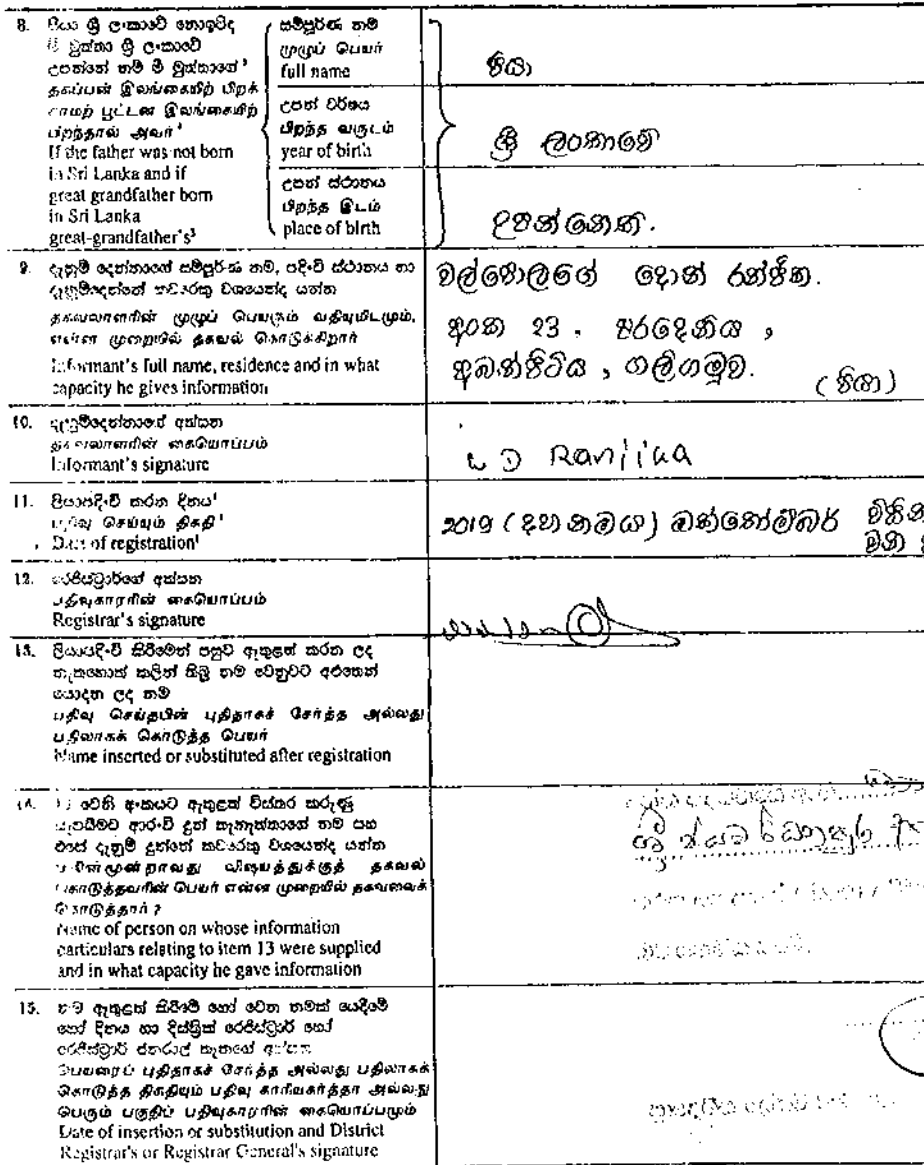 8. පියා ශ්‍රී ලංකාවේ නොඉපිද
මී මුත්තා ශ්‍රී ලංකාවේ
උපන්නේ නම් මී මුත්තාගේ
தகப்பன் இலங்கையிற் பிறக்
காமற் பூட்டன் இலங்கையிற்
பிறந்தால் அவர்
If the father was not born
in Sri Lanka and if
great grandfather born
in Sri Lanka
great-grandfather's³
සම්පූර්ණ නම
முழுப் பெயர்
full name
පියා
උපන් වර්ෂය
பிறந்த வருடம்
year of birth
ශ්‍රී ලංකාවේ
උපන් ස්ථානය
பிறந்த இடம்
place of birth
උපන්නෙකි.
9. දැනුම් දෙන්නාගේ සම්පූර්ණ නම, පදිංචි ස්ථානය හා
දැනුම්දෙන්නේ කවරකු වශයෙන්ද යන්න
தகவலாளரின் முழுப் பெயரும் வதியுமிடமும்,
என்ன முறையில் தகவல் கொடுக்கிறார்
Informant's full name, residence and in what
capacity he gives information
වල්පොලගේ දොන් රන්ජික.
අංක 23,
ගලිගමුව.
(පියා)
10. දැනුම්දෙන්නාගේ අත්සන
தகவலாளரின் கையொப்பம்
Informant's signature
W D Ranjika
11. ලියාපදිංචි කරන දිනය¹
பதிவு செய்யும் திகதி¹
Date of registration¹
2019 (දහනමය) ඔක්තෝම්බර්
12. රෙජිස්ට්‍රාර්ගේ අත්සන
பதிவுகாரரின் கையொப்பம்
Registrar's signature
13. ලියාපදිංචි කිරීමෙන් පසුව ඇතුළත් කරන ලද
නැතහොත් කලින් තිබූ නම වෙනුවට අළුතෙන්
යොදන ලද නම
பதிவு செய்தபின் புதிதாகச் சேர்த்த அல்லது
பதிலாகக் கொடுத்த பெயர்
Name inserted or substituted after registration
14. 13 වෙනි අංකයට ඇතුළත් විස්තර කරුණු
සැපයීමට ආරංචි දුන් තැනැත්තාගේ නම සහ
එසේ දැනුම් දුන්නේ කවරකු වශයෙන්ද යන්න
பதின்மூன்றாவது விஷயத்துக்குத் தகவல்
கொடுத்தவரின் பெயர் என்ன முறையில் தகவலைக்
கொடுத்தார் ?
Name of person on whose information
particulars relating to item 13 were supplied
and in what capacity he gave information
15. නම ඇතුළත් කිරීමේ හෝ වෙන නමක් යෙදීමේ
හෝ දිනය හා දිස්ත්‍රික් රෙජිස්ට්‍රාර් හෝ
රෙජිස්ට්‍රාර් ජනරාල් තැනගේ අත්සන
பெயரைப் புதிதாகச் சேர்த்த அல்லது பதிலாகக்
கொடுத்த திகதியும் பதிவு காரியகர்த்தா அல்லது
பெரும் பகுதிப் பதிவுகாரரின் கையொப்பமும்
Date of insertion or substitution and District
Registrar's or Registrar General's signature